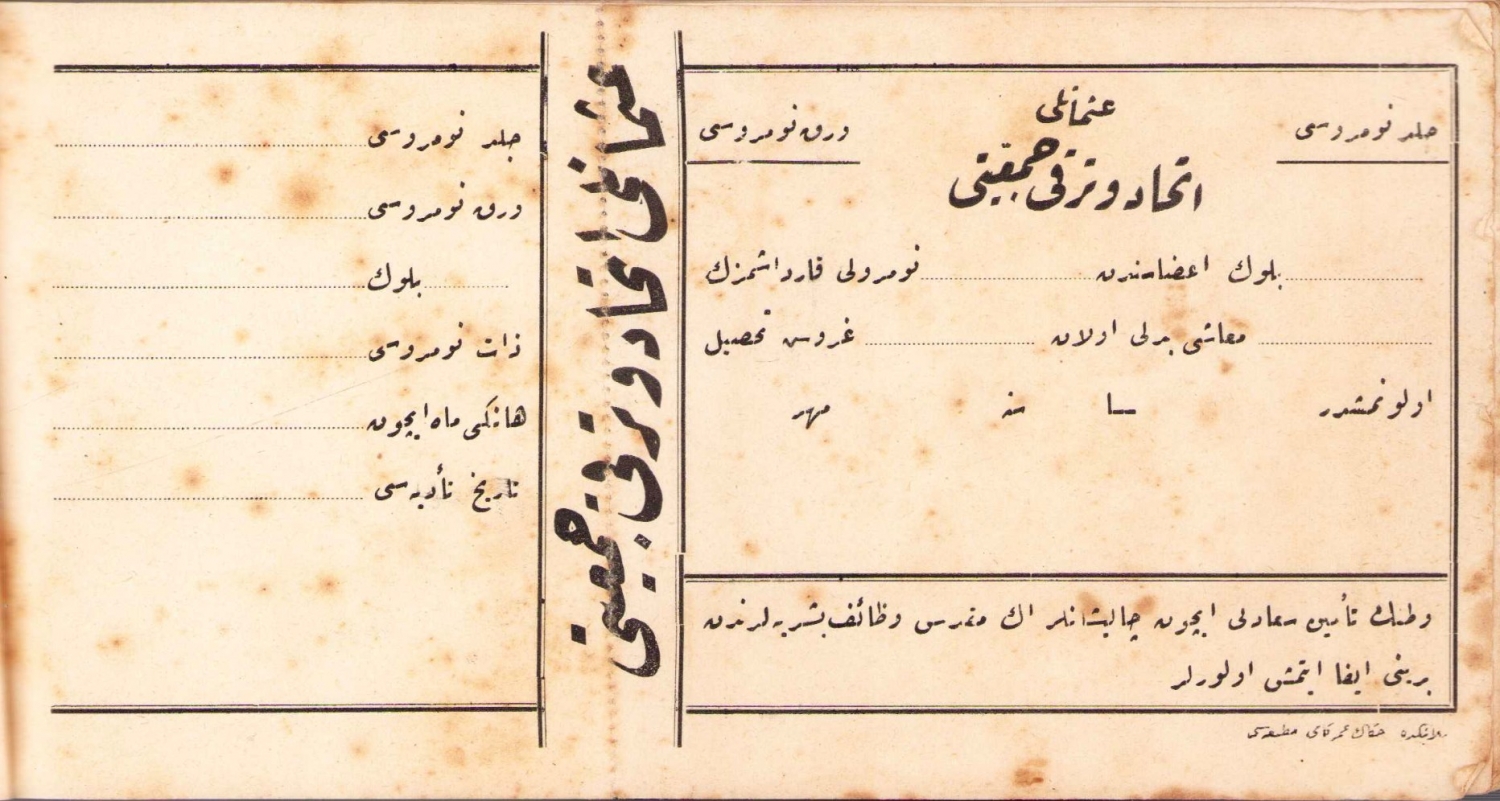 جلد نومروسی
عثمانلی
ورق نومروسی
اتحاد و ترقی جمعیتی
بلوك اعضاسندن نومرولی قارداشمزك
معاشی بدلی اولان غروش تحصیل
اولونمشدر سا سنه مهر
وطنك تأمین سعادتی ایچون چالیشانلر اك مقدس وظائف بشریه لرندن
برینی ایفا ایتمش اولورلر
سلانیكده حكاك مطبعه‌سی
عثمانلی اتحاد و ترقی جمعیتی
جلد نومروسی
ورق نومروسی
بلوك
ذات نومروسی
هانكی ماه ایچون
تاریخ تأدیه سی